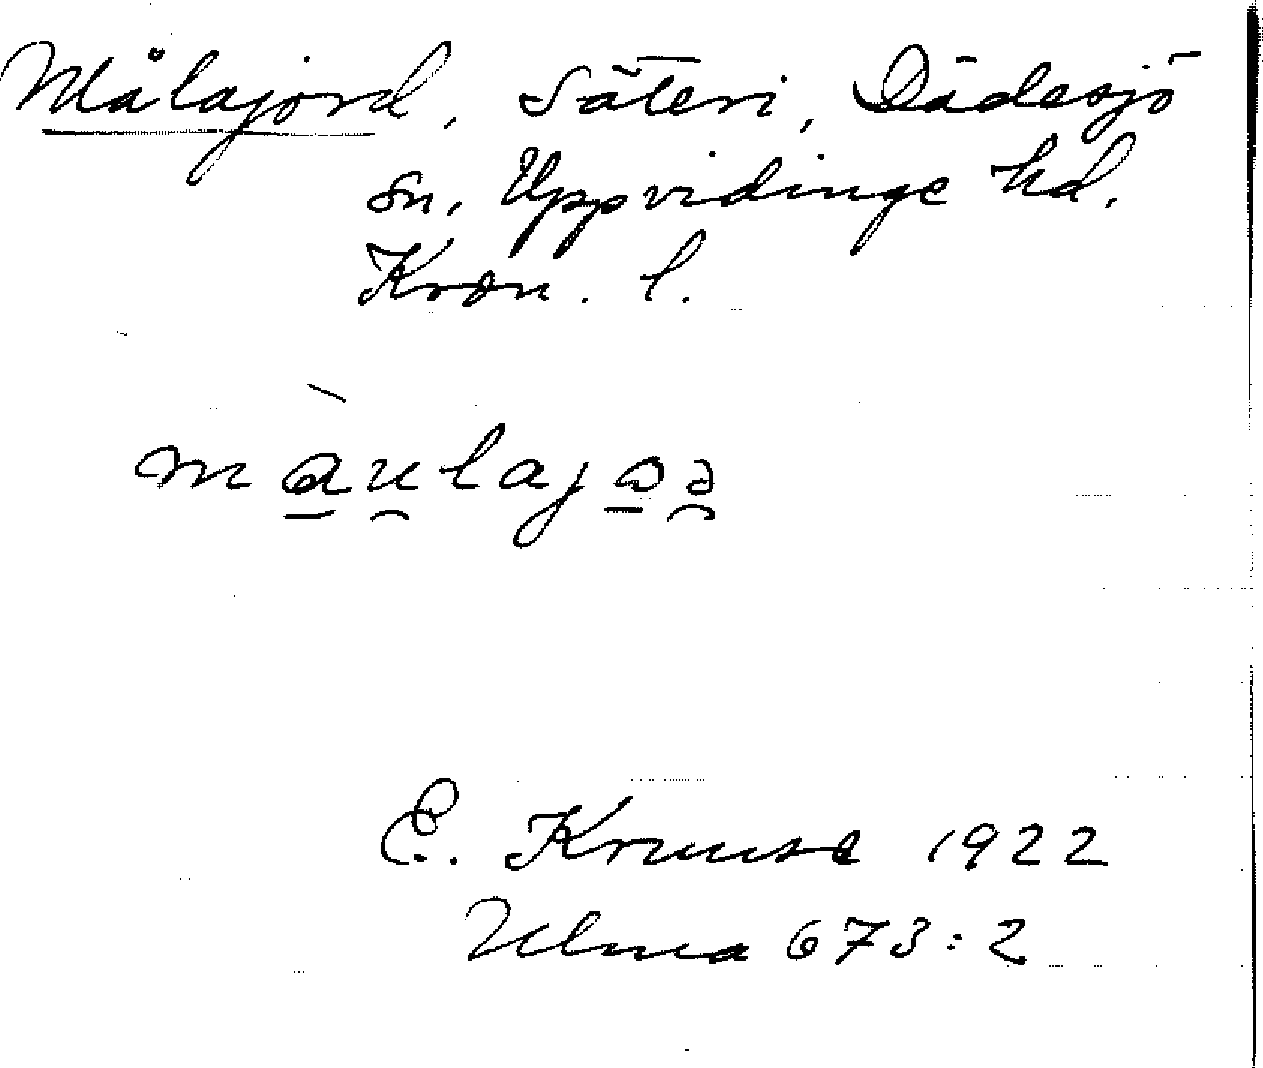 Målajord, Säteri, Dädesjö
sn. Uppvidinge hd.
Kron. l.
E. Kruuse 1922
Ulma 673:2